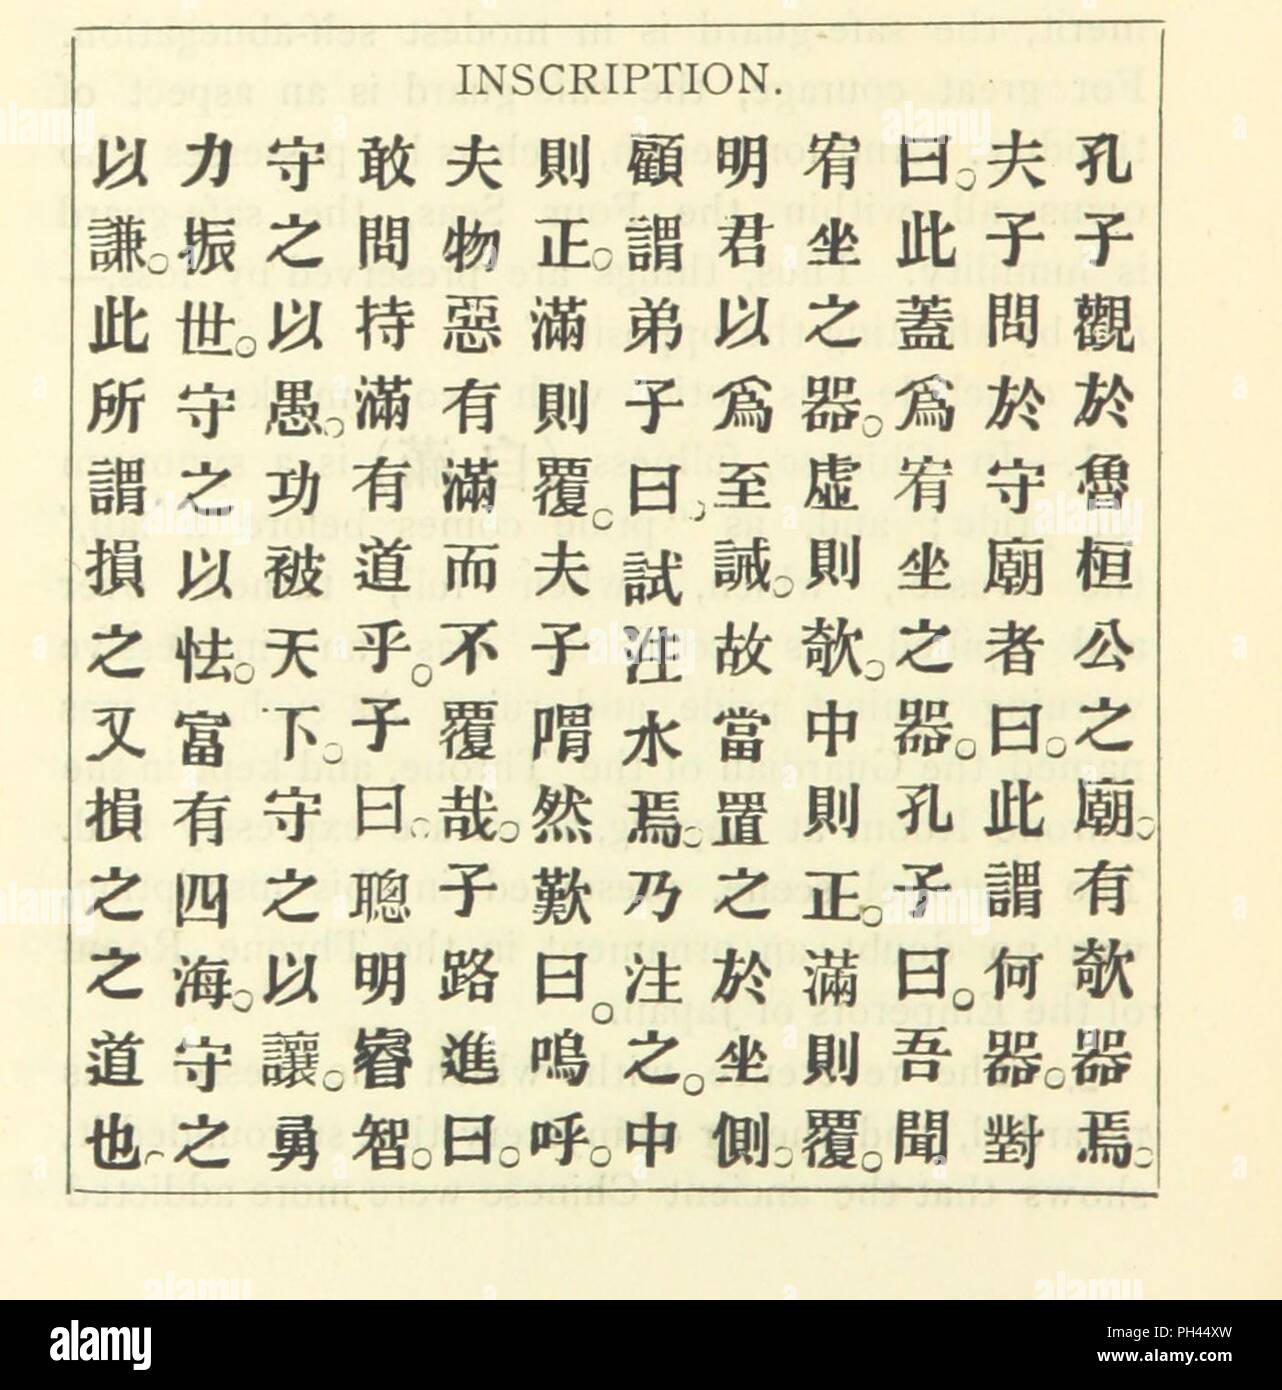 INSCRIPTION.
孔子觀於魯桓公之廟。有欹器焉。
夫子問於守廟者曰。此謂何器。對
曰。此蓋爲宥坐之器。孔子曰。吾聞
宥坐之器。虛則欹。中則正。滿則覆。
明君以爲至誡。故當置之於坐側。
顧謂弟子曰、試注水焉。乃注之。中
則正。滿則覆。夫子喟然歎曰。嗚呼。
夫物惡有滿而不覆哉。子路進曰。
敢問持滿有道乎。子曰。聰明睿智。
守之以愚。功被天下。守之以讓。勇
力振世。守之以怯。富有四海。守之
以謙。此所謂損之又損之之道也。
alamy
Image ID: PH44XW
www.alamy.com